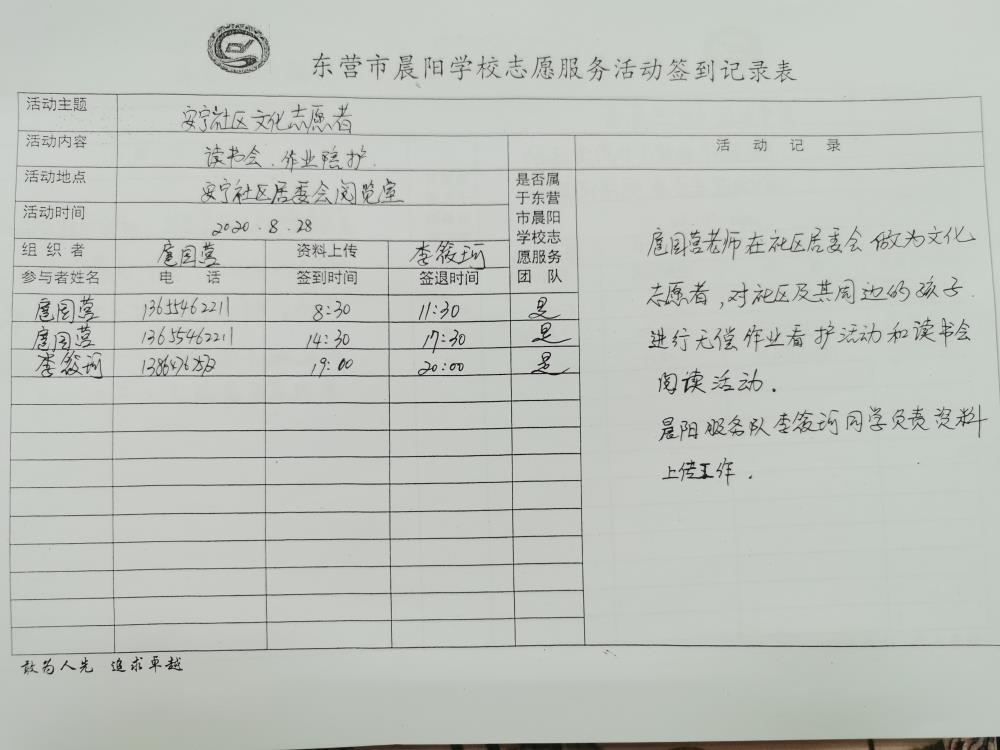 东营市晨阳学校志愿服务活动签到记录表
活动主题 安宁社区文化志愿者
活动内容 读书会、作业陪护.
活动地点 安宁社区居委会阅览室
活动时间 2020.8.28
组织者 扈园营 资料上传 李筱珂
参与者姓名 电话 签到时间 签退时间
是否属
于东营
市晨阳
学校志
愿服务
团队
扈园营 13655462211 8:30 11:30 是
扈园营 13655462211 14:30 17:30 是
李筱珂 19:00 20:00 是
活动记录
扈园营老师在社区居委会做为文化
志愿者,对社区及其周边的孩子
进行无偿作业看护活动和读书会
阅读活动.
晨阳服务队李筱珂同学负责资料
上传工作.
敢为人先 追求卓越